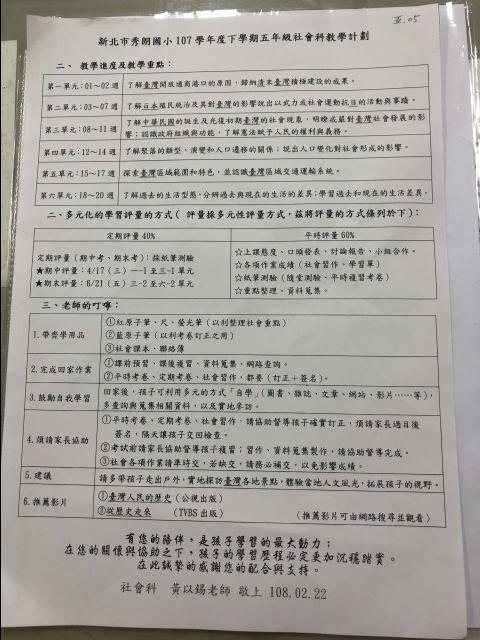 五.05
新北市秀朗國小 107 學年度下學期五年級社會科教學計劃
二、 教學進度及教學重點：
第一單元：01～02 週 了解臺灣開放通商港口的原因，歸納清末臺灣積極建設的成果。
第二單元：03～07 週 了解日本殖民統治及其對臺灣的影響說出以武力或社會運動抗日的活動與事蹟。
第三單元：08～11 週 了解中華民國的誕生及光復初期臺灣的社會現象，明瞭戒嚴對臺灣社會發展的影
響；認識政府組織與功能，了解憲法賦予人民的權利與義務。
第四單元：12～14 週 了解聚落的類型、演變和人口遷移的關係；說出人口變化對社會形成的影響。
第五單元：15～17 週 探索臺灣區域範圍和特色，並認識臺灣區域交通運輸系統。
第六單元：18～20 週 了解過去的生活型態，分辨過去與現在的生活的差異；學習過去和現在的生活差異。
二、多元化的學習評量的方式( 評量採多元性評量方式，茲將評量的方式條列於下)：
定期評量 40% 平時評量 60%
定期評量（期中考、期末考）：採紙筆測驗
★期中評量：4/17（三）一-1 至三-1 單元
★期末評量：6/21（五）三-2 至六-2 單元
☆上課態度、口頭發表、討論報告、小組合作。
☆各項作業成績（社會習作、學習單）
☆紙筆測驗（隨堂測驗、平時複習考卷）
☆重點整理、資料蒐集。
三、老師的叮嚀：
1.帶齊學用品 ①紅原子筆、尺、螢光筆（以利整理社會重點）
②藍原子筆（以利考卷訂正之用）
③社會課本、聯絡簿
2.完成回家作業 ①課前預習、課後複習、資料蒐集、網路查詢。
②平時考卷、定期考卷、社會習作，都要（訂正＋簽名）。
3.鼓勵自我學習 回家後，孩子可利用多元的方式「自學」（圖書、雜誌、文章、網站、影片……等），
多查詢與蒐集相關資料，以及實地參訪。
4.煩請家長協助 ①平時考卷、定期考卷、社會習作，請協助督導孩子確實訂正，煩請家長過目後
簽名，隔天讓孩子交回檢查。
②考試前請家長協助督導孩子複習；習作、資料蒐集製作，請協助督導完成。
③社會各項作業請準時交，若缺交，請務必補交，以免影響成績。
5.建議 請多帶孩子走出戶外，實地探訪臺灣各地景點，體驗當地人文風光，拓展孩子的視野。
6.推薦影片 ①臺灣人民的歷史（公視出版）
②從歷史走來 （TVBS 出版） （推薦影片可由網路搜尋並觀看）
有您的陪伴，是孩子學習的最大動力；
在您的關懷與協助之下，孩子的學習歷程必定更加沉穩踏實。
在此誠摯的感謝您的配合與支持。
社會科 黃以錫老師 敬上 108.02.22